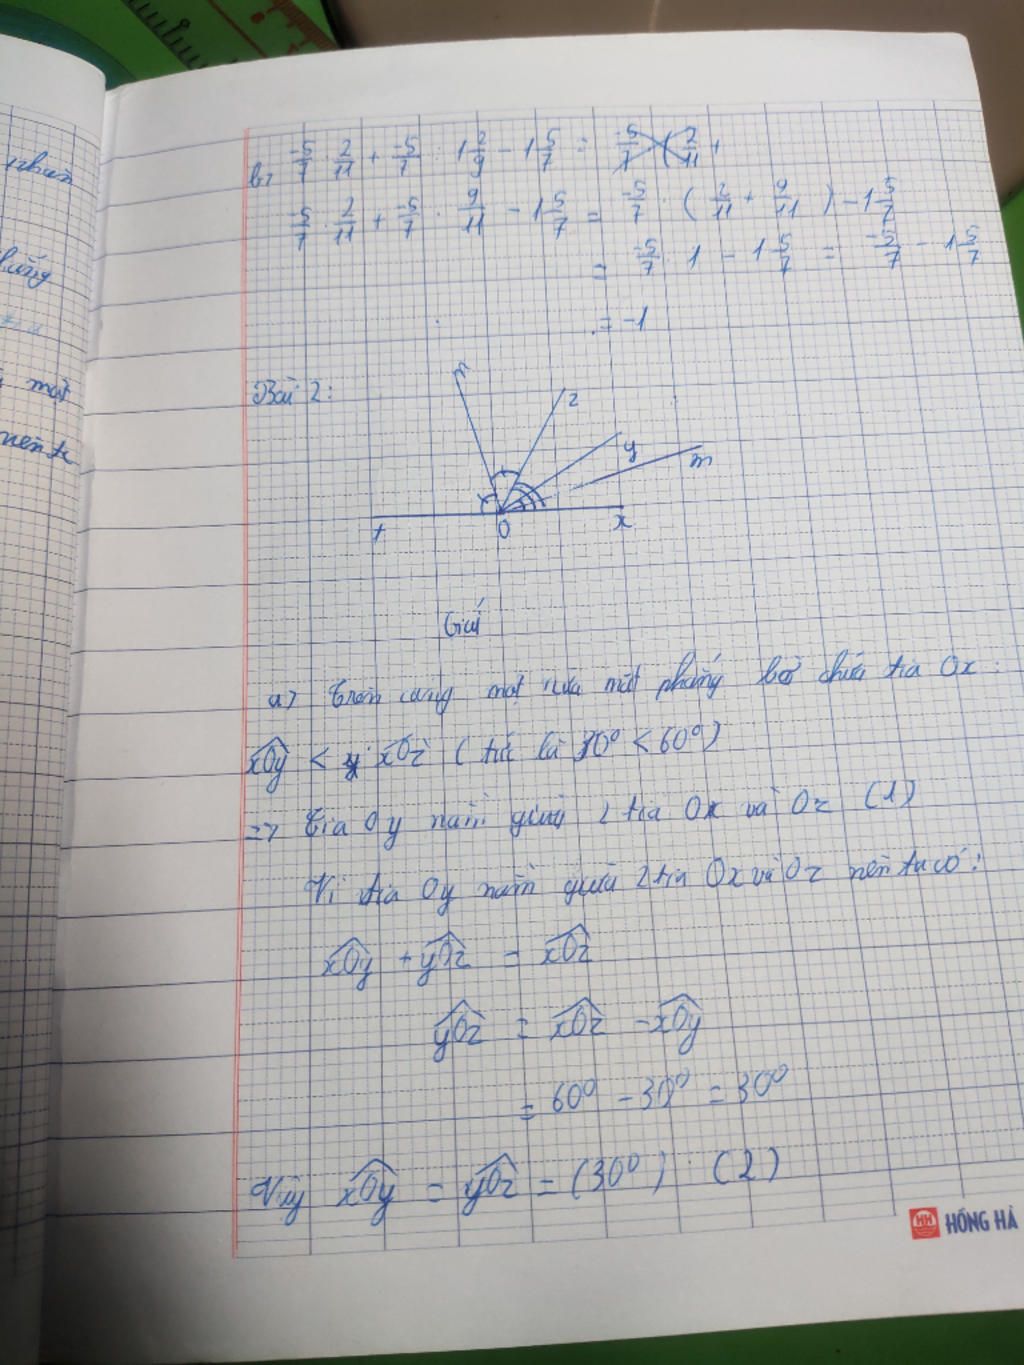 nhau
b, -5/7 · 2/11 + -5/7 · 1 2/9 - 1 5/7 = -5/7 (2/11 +
-5/7 · 2/11 + -5/7 · 9/11 - 1 5/7 = -5/7 · (2/11 + 9/11) - 1 5/7
= -5/7 · 1 - 1 5/7 = -5/7 - 1 5/7
= -1
một
nên ta
Bài 2:
z
y
m
t
O
x
Giải
a) trên cùng một nửa mặt phẳng bờ chứa tia Ox:
xOy < xOz (tức là 30° < 60°)
=> tia Oy nằm giữa 2 tia Ox và Oz (1)
Vì tia Oy nằm giữa 2 tia Ox và Oz nên ta có:
xOy + yOz = xOz
yOz = xOz - xOy
= 60° - 30° = 30°
Vậy xOy = yOz = (30°) (2)
HH HỒNG HÀ